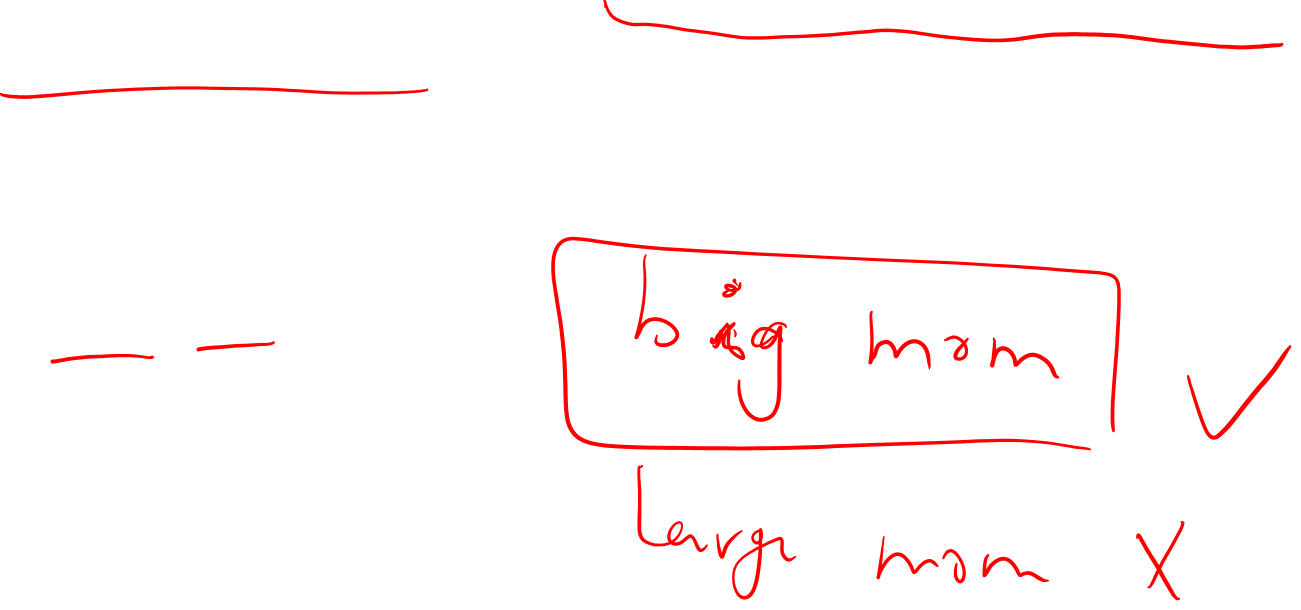 big mom ✓
large mom X